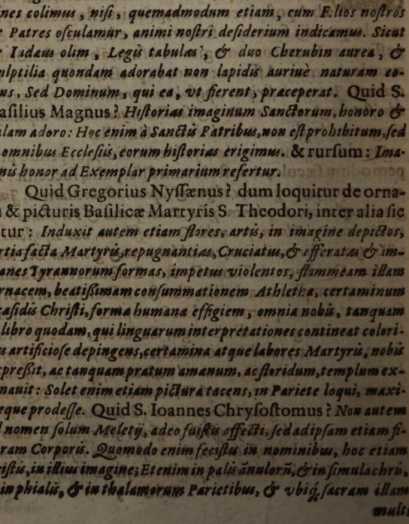 nes colimus, nisi, quemadmodum etiam, cum Filios nostrós
Patres osculamur, animi nostri desiderium indicamus. Sicut
Iudæus olim, Legis tabulas, & duo Cherubin aurea, &
ulptilia quondam adorabat non lapidis auriuè naturam
us, Sed Dominum, qui ea, vt fierent, præceperat. Quid S.
asilius Magnus? Historias imaginum Sanctorum, honoro &
alam adoro: Hoc enim à Sanctis Patribus, non est prohibitum, sed
omnibus Ecclesijs, eorum historias erigimus. & rursum: Ima-
nis honor ad Exemplar primarium refertur.
Quid Gregorius Nyssænus? dum loquitur de orna-
& picturis Basilicæ Martyris S. Theodori, inter alia sic
tur: Induxit autem etiam flores, artis, in imagine depictos,
rtia facta Martyris, repugnantias, Cruciatus, & efferatas & im-
anes Tyrannorum formas, impetus violentos, flammeam illam
rnacem, beatissimam consummationem Athletæ, certaminum
æsidis Christi, forma humana effigiem, omnia nobis, tanquam
libro quodam, qui linguarum interpretationes contineat colori-
artificiose depingens, certamina atque labores Martyris, nobis
pressit, ac tanquam pratum amænum, ac floridum, templum ex-
nauit: Solet enim etiam pictura tacens, in Pariete loqui, maxi-
que prodesse. Quid S. Ioannes Chrysostomus? Non autem
nomen solum Meletij, adeo fuistis affecti, sed ad ipsam etiam fi-
ram Corporis. Quomodo enim fecistis in nominibus, hoc etiam
cistis, in illius imagine; Etenim in palis anulorũ, & in simulachris,
in phialis, & in thalamorum Parietibus, & vbiq́, sacram illam
mult